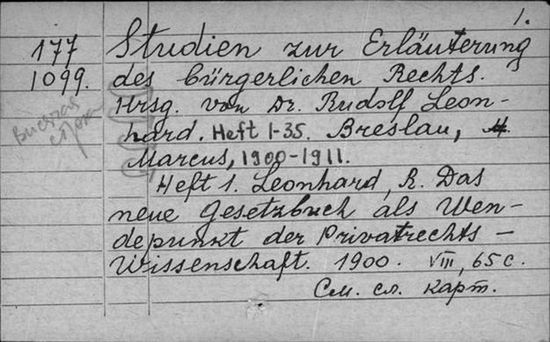 1.
177
1099.
Studien zur Erläuterung
des bürgerlichen Rechts.
Hrsg. von Dr. Rudolf Leon-
hard. Heft 1-35. Breslau, M.
Marcus, 1900-1911.
Heft 1. Leonhard, R. Das
neue Gesetzbuch als Wen-
depunkt der Privatrechts-
Wissenschaft. 1900. VIII, 65 с.
См. сл. карт.